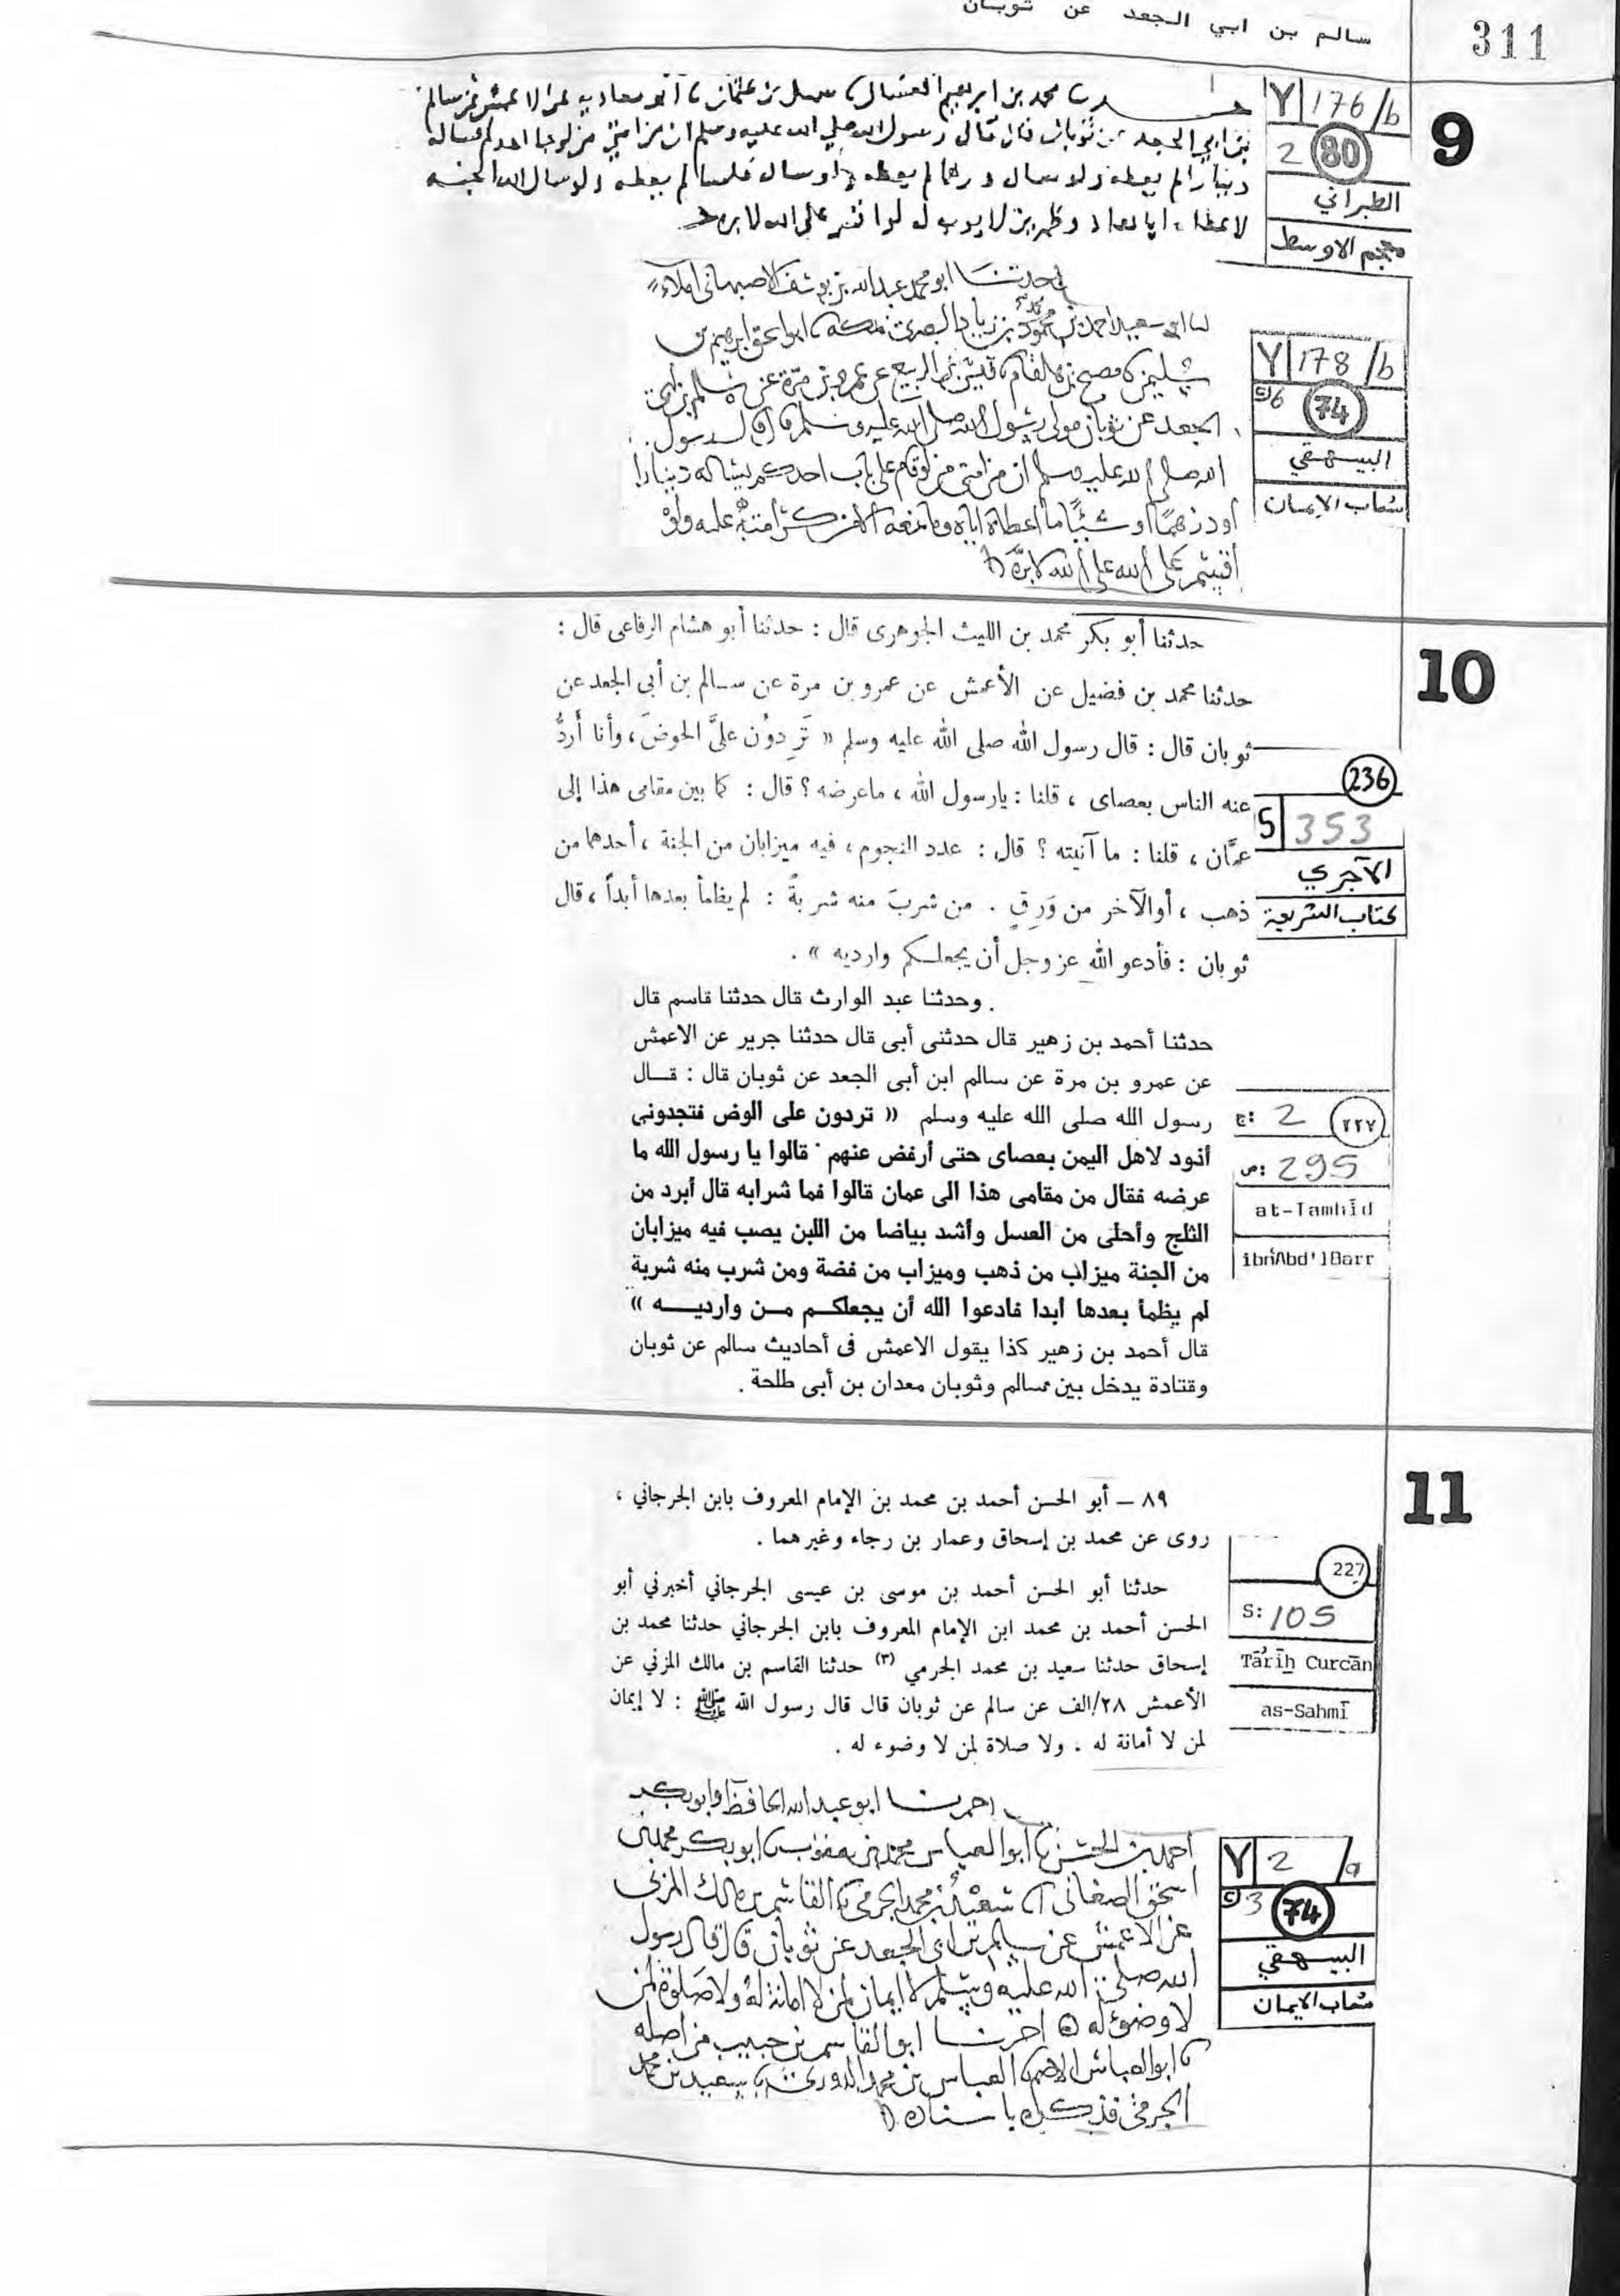 311
سالم بن ابي الجعد عن ثوبان
9
Y 176/b
2 80
الطبراني
معجم الاوسط
محمد بن ابرهيم العسال
بن ابي الجعد عن ثوبان قال قال رسول الله صلي الله عليه وسلم ان من امتي من لو جا احدكم فساله
دينارا لم يعطه ولو ساله درهما لم يعطه ولو ساله فلسا لم يعطه ولو سال الله الجنه
لو اقسم على الله لابره
Y 178/b
6 74
البيهقي
شعاب الإيمان
حدثنا ابو محمد عبدالله بن يوسف الاصبهاني املاء
الجعد عن ثوبان مولى رسول الله صلى الله عليه وسلم قال قال رسول
الله صلى الله عليه وسلم ان من امتي من لو قام على باب احدكم يسأله دينارا
أو درهما او شيئا ما اعطاه اياه
أقسم على الله لابره
10
حدثنا أبو بكر محمد بن الليث الجوهرى قال : حدثنا أبو هشام الرفاعى قال :
حدثنا محمد بن فضيل عن الأعمش عن عمرو بن مرة عن سالم بن أبى الجعد عن
ثوبان قال : قال رسول الله صلى الله عليه وسلم « تَرِدوُن علىَّ الحوضَ ، وأنا أَردُّ
عنه الناس بعصاى ، قلنا : يارسول الله ، ماعرضه ؟ قال : كما بين مقامى هذا إلى
عمَّان ، قلنا : ما آنيته ؟ قال : عدد النجوم ، فيه ميزابان من الجنة ، أحدهما من
ذهب ، أوالآخر من وَرِقٍ . من شربَ منه شربةً : لم يظمأ بعدها أبداً ، قال
ثوبان : فأدعو الله عز وجل أن يجعلكم وارديه » .
236
S 353
الآجري
كتاب الشريعة
. وحدثنا عبد الوارث قال حدثنا قاسم قال
حدثنا أحمد بن زهير قال حدثنى أبى قال حدثنا جرير عن الاعمش
عن عمرو بن مرة عن سالم ابن أبى الجعد عن ثوبان قال : قـال
رسول الله صلى الله عليه وسلم « تردون على الوض فتجدونى
أذود لاهل اليمن بعصاى حتى أرفض عنهم · قالوا يا رسول الله ما
عرضه فقال من مقامى هذا الى عمان قالوا فما شرابه قال أبرد من
الثلج وأحلى من العسل وأشد بياضا من اللبن يصب فيه ميزابان
من الجنة ميزاب من ذهب وميزاب من فضة ومن شرب منه شربة
لم يظمأ بعدها أبدا فادعوا الله أن يجعلكـم مـن وارديـــه »
قال أحمد بن زهير كذا يقول الاعمش فى أحاديث سالم عن ثوبان
وقتادة يدخل بين سالم وثوبان معدان بن أبى طلحة .
ج: 2 ٢٢٧
ص: 295
at-Tamhīd
ibn'Abd'lBarr
11
٨٩ – أبو الحسن أحمد بن محمد بن الإمام المعروف بابن الجرجاني ،
روى عن محمد بن إسحاق وعمار بن رجاء وغيرهما .
حدثنا أبو الحسن أحمد بن موسى بن عيسى الجرجاني أخبرني أبو
الحسن أحمد بن محمد ابن الإمام المعروف بابن الجرجاني حدثنا محمد بن
إسحاق حدثنا سعيد بن محمد الجرمي (٣) حدثنا القاسم بن مالك المزني عن
الأعمش ٢٨/الف عن سالم عن ثوبان قال قال رسول الله ﷺ : لا إيمان
لمن لا أمانة له . ولا صلاة لمن لا وضوء له .
227
S: 105
Tārīḫ Curcān
as-Sahmī
ابو عبد الله الحافظ وابو بكر
ابو العباس محمد بن يعقوب ابو بكر محمد بن
اسحق الصغاني سعيد بن محمد الجرمي القاسم بن مالك المزني
عن الاعمش عن سالم بن ابي الجعد عن ثوبان قال قال رسول
الله صلى الله عليه وسلم لا ايمان لمن لا امانة له ولا صلوة لمن
لا وضوء له اخبرنا ابو القاسم بن حبيب من اصله
ابو العباس الاصم العباس بن محمد الدوري سعيد بن محمد
الجرمي فذكره باسناده
Y 2/a
3 74
البيهقي
شعاب الايمان